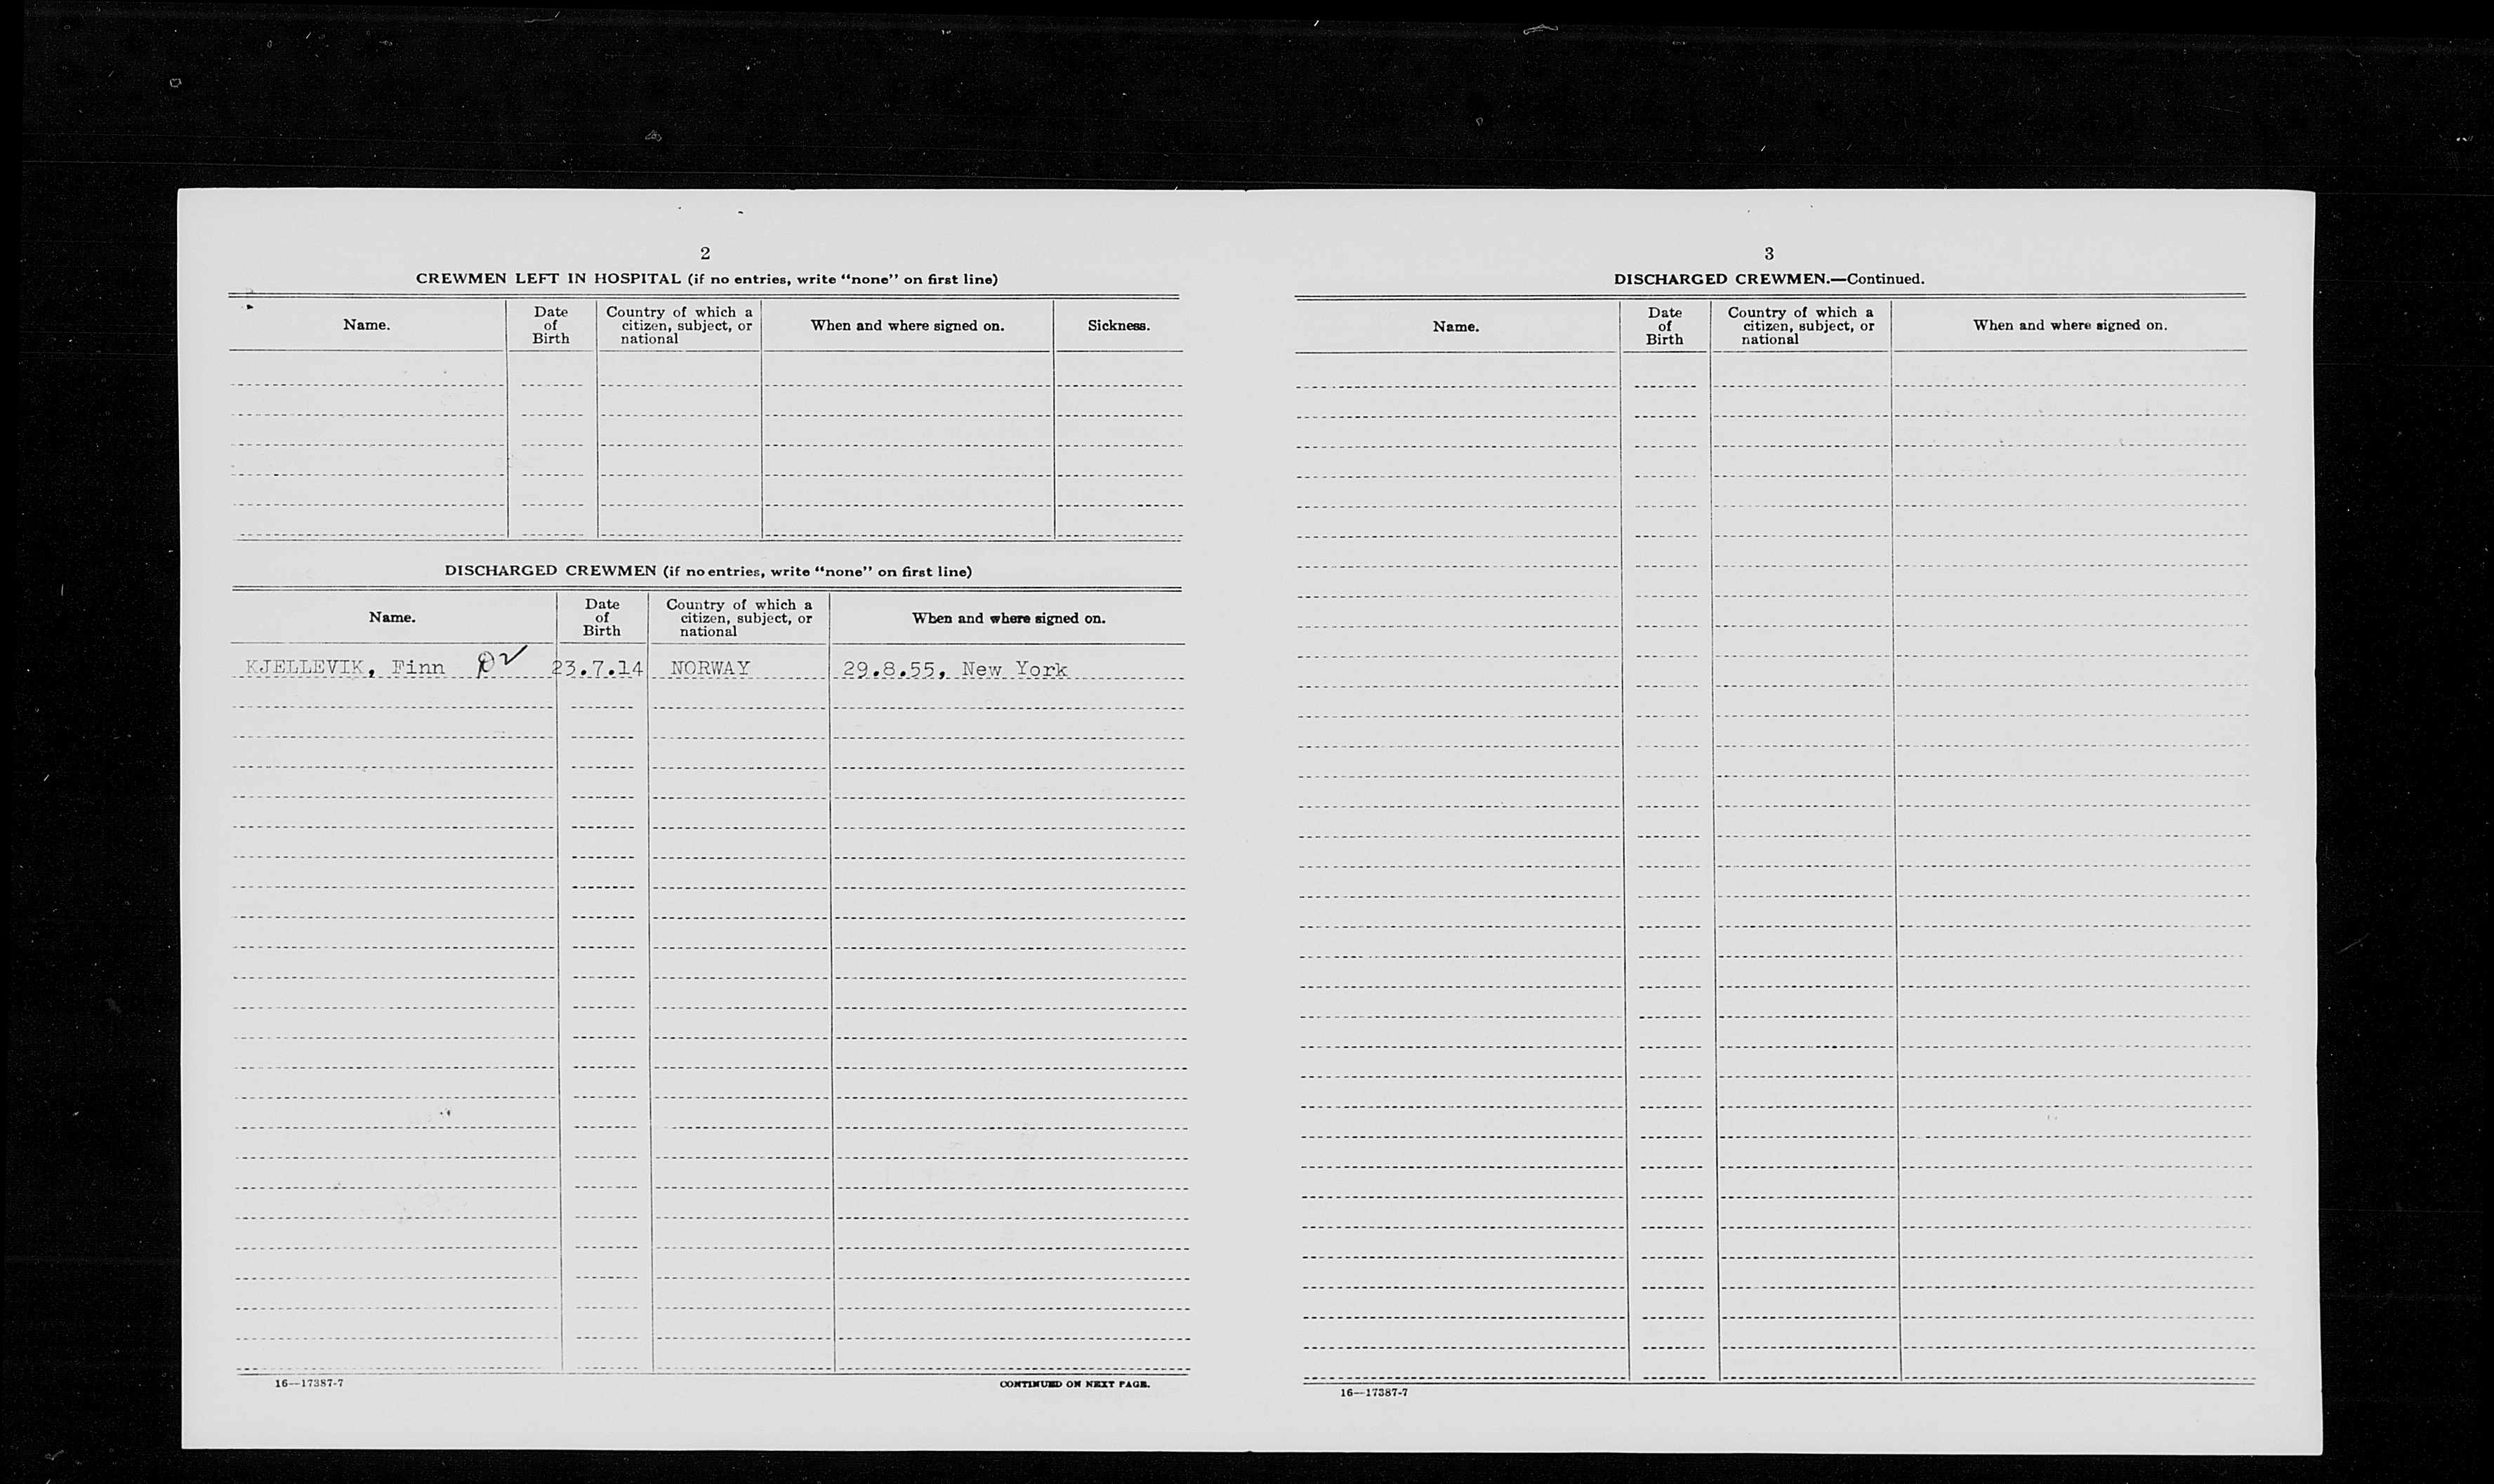 2
CREWMEN LEFT IN HOSPITAL (if no entries, write “none” on first line)
Name.
Date of Birth
Country of which a citizen, subject, or national
When and where signed on.
Sickness.
DISCHARGED CREWMEN (if no entries, write “none” on first line)
Name.
Date of Birth
Country of which a citizen, subject, or national
When and where signed on.
KJELLEVIK, Finn 23.7.14 NORWAY 29.8.55, New York
16—17387-7
CONTINUED ON NEXT PAGE.
3
DISCHARGED CREWMEN.—Continued.
Name.
Date of Birth
Country of which a citizen, subject, or national
When and where signed on.
16—17387-7